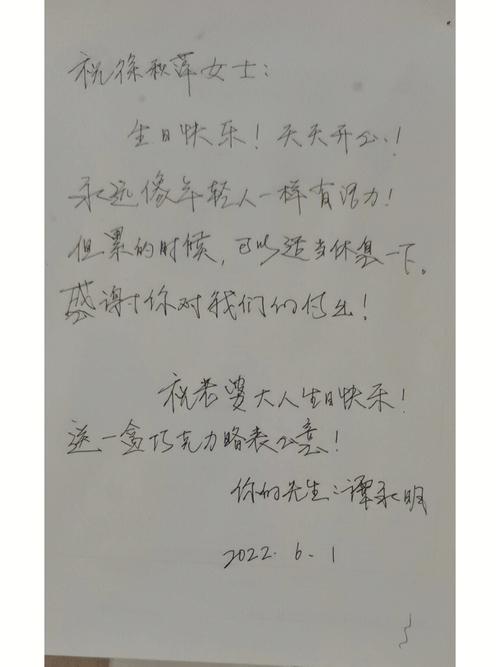 祝徐秋萍女士：
生日快乐！天天开心！
永远像年轻人一样有活力！
但累的时候，可以适当休息一下。
感谢你对我们的付出！
祝老婆大人生日快乐！
送一盒巧克力略表心意！
你的先生：谭永明
2022.6.1